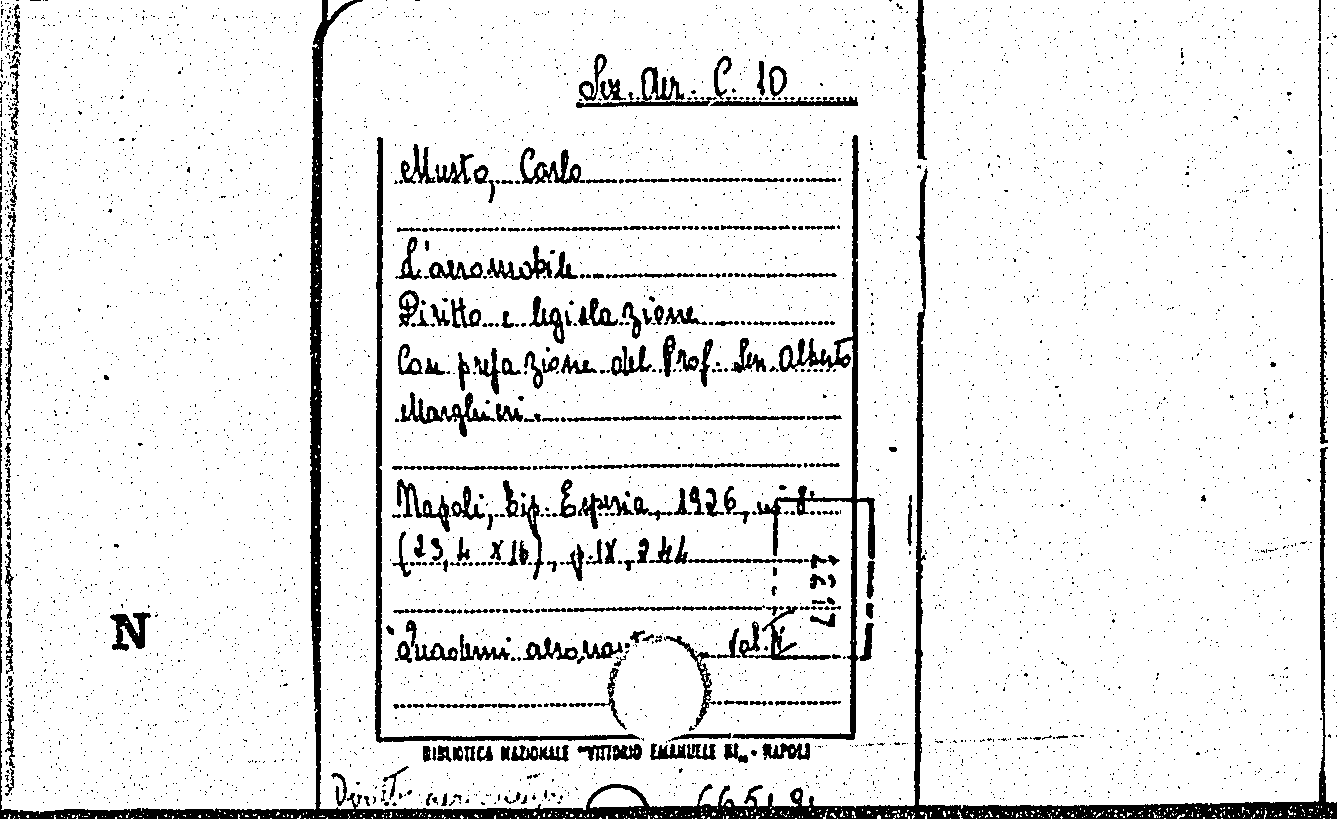 Sez. Aer. C. 10
Musto, Carlo
L'aeromobile
Diritto e legislazione
Con prefazione del Prof. Sen. Alberto
Marghieri.
Napoli, Tip. Esperia, 1926, in 8°
(23,4 x 16), p. IX, 244
Quaderni Vol.
BIBLIOTECA NAZIONALE "VITTORIO EMANUELE III„ - NAPOLI
N
Diritto